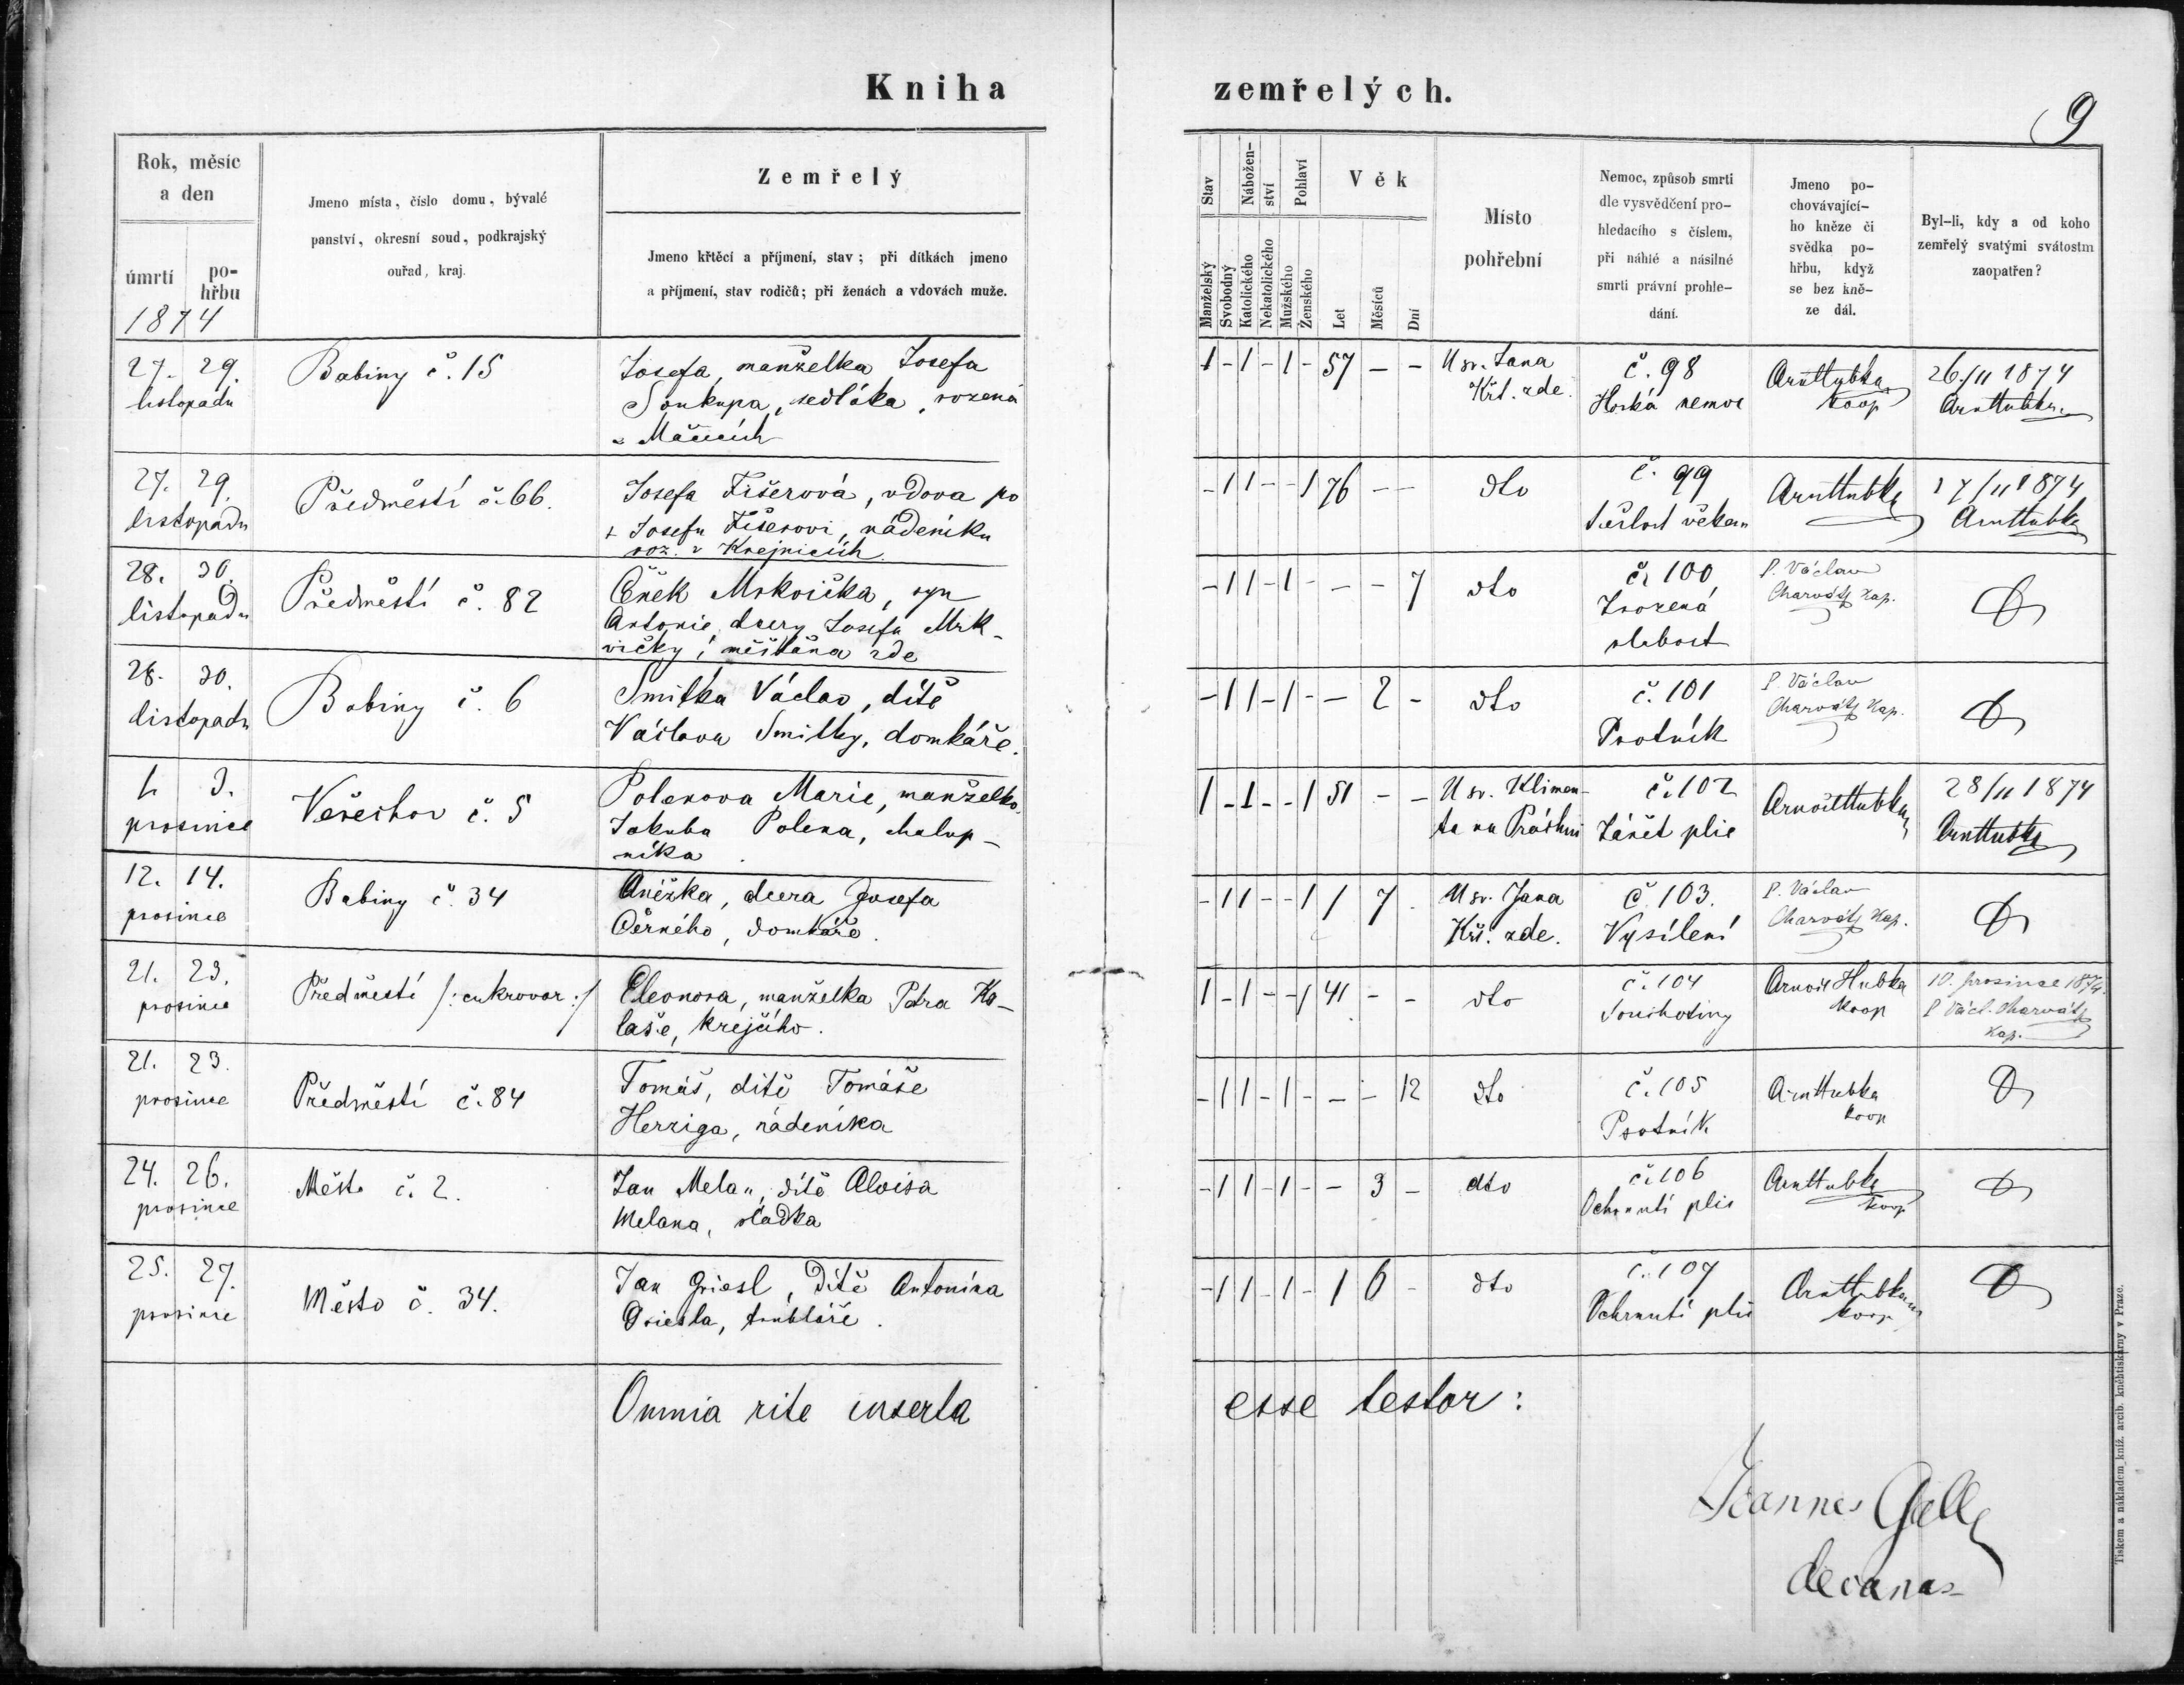 Kniha zemřelých.
9
Rok, měsíc
a den
úmrtí
po-
hřbu
1874
Jmeno místa, číslo domu, bývalé
panství, okresní soud, podkrajský
ouřad, kraj.
Zemřelý
Jmeno křtěcí a příjmení, stav; při dítkách jmeno
a příjmení, stav rodičů; při ženách a vdovách muže.
Stav
Manželský
Svobodný
Nábožen-
ství
Katolického
Nekatolického
Pohlaví
Mužského
Ženského
Věk
Let
Měsíců
Dní
Místo
pohřební
Nemoc, způsob smrti
dle vysvědčení pro-
hledacího s číslem,
při náhlé a násilné
smrti právní prohle-
dání.
Jmeno po-
chovávající-
ho kněze či
svědka po-
hřbu, když
se bez kně-
ze dál.
Byl-li, kdy a od koho
zemřelý svatými svátostm
zaopatřen?
27. 29.
listopadu
Babiny č. 15
Josefa, manželka Josefa
Soukupa, sedláka, rozená
1 - 1 - 1 - 57 - -
U sv. Jana
Křt. zde.
č. 98
Horká nemoc
koop
26./11 1874
27. 29.
listopadu
Předměstí č. 66.
Josefa Fišerová, vdova po
+ Josefu Fišerovi, nádeníku
roz. v Krejnicích
- 1 1 - - 1 76 - -
dto
č. 99
Sešlost věkem
27/11 1874
28. 30.
listopadu
Předměstí č. 82
Čeněk Mrkvička, syn
Antonie, dcery Josefa Mrk-
vičky, měšťana zde
- 1 1 - 1 - - - 7
dto
č. 100
Zrozená
slabost
P. Václav
Charvát kap.
28. 30.
listopadu
Babiny č. 6
Smitka Václav, dítě
Václava Smitky, domkáře.
- 1 1 - 1 - - 2 -
dto
č. 101
Psotník
P. Václav
Charvát kap.
1. 3.
prosince
č. 5
Polenova Marie, manželka
Jakuba Polena, chalup-
níka
1 - 1 - - 1 51 - -
U sv. Klimen-
ta na
č. 102
Zánět plic
28/11 1874
12. 14.
prosince
Babiny č. 34
Anežka, dcera Josefa
Černého, domkáře.
- 1 1 - - 1 1 7 -
U sv. Jana
Křt. zde.
č. 103.
Vysílení
P. Václav
Charvát kap.
21. 23.
prosince
Předměstí /: cukrovar :/
Eleonora, manželka Petra Ko-
laše, krejčího.
1 - 1 - - 1 41 - -
dto
č. 104
Souchotiny
Arnošt Hubka
koop
10. prosince 1874.
P. Václ. Charvát
kap.
21. 23.
prosince
Předměstí č. 84
Tomáš, dítě Tomáše
Herziga, nádeníka
- 1 1 - 1 - - - 12
dto
č. 105
Psotník
koop
24. 26.
prosince
Město č. 2.
Jan Melan, dítě Aloisa
Melana, sládka
- 1 1 - 1 - - 3 -
dto
č. 106
Ochrnutí plic
koop
25. 27.
prosince
Město č. 34.
Jan Griesl, dítě Antonína
Griesla, truhláře.
- 1 1 - 1 - 1 6 -
dto
č. 107
Ochrnutí plic
koop
Omnia rite inserta esse testor:
Joannes Gelle
decanus
Tiskem a nákladem kníž. arcib. knihtiskárny v Praze.